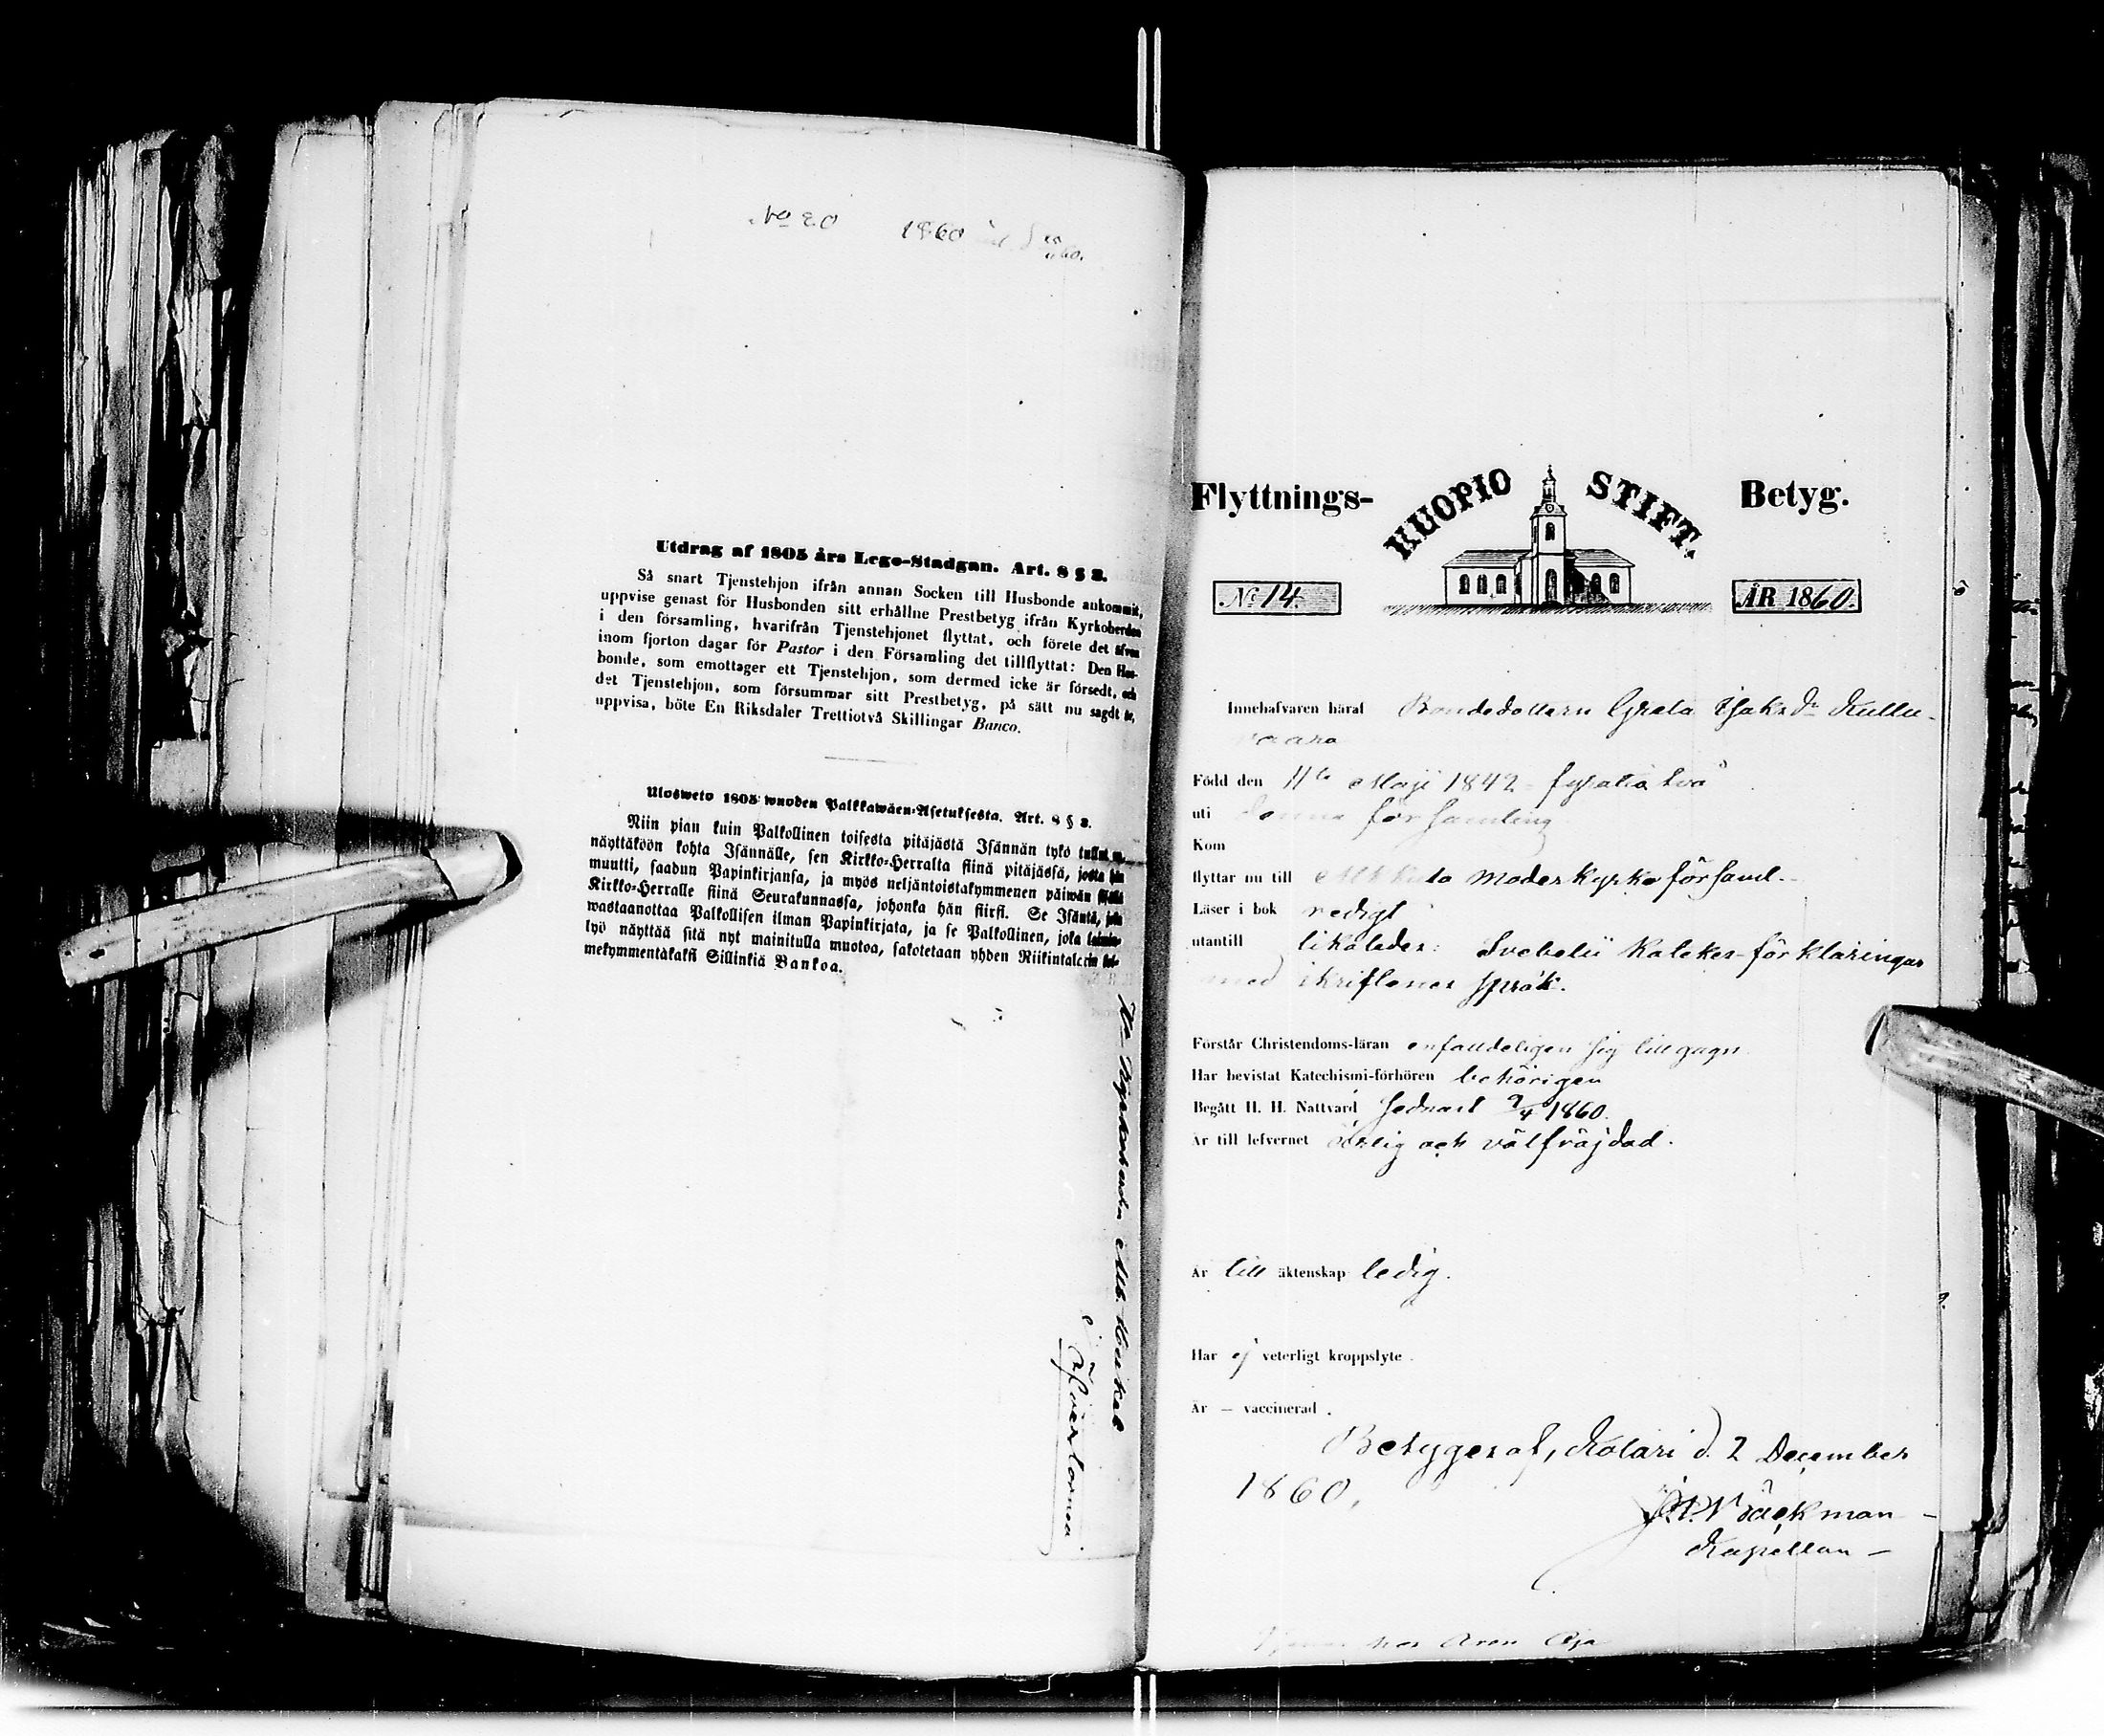 No 20 1860
Utdrag af 1805 års Lego-Stadgan. Art. 8 § 2.
Så snart Tjenstehjon ifrån annan Socken till Husbonde ankommit,
uppvise genast för Husbonden sitt erhållne Prestbetyg ifrån Kyrkoherden
i den församling, hvarifrån Tjenstehjonet flyttat, och förete det äfven
inom fjorton dagar för Pastor i den Församling det tillflyttat: Den Hus-
bonde, som emottager ett Tjenstehjon, som dermed icke är försedt, och
det Tjenstehjon, som försummar sitt Prestbetyg, på sätt nu sagdt är,
uppvisa, böte En Riksdaler Trettiotvå Skillingar Banco.
Ulosweto 1805 wuoden Palkkawäen-Asetuksesta. Art. 8 § 2.
Niin pian kuin Palkollinen toisesta pitäjästä Isännän tykö tullut
näyttäköön kohta Isännälle, sen Kirkko-Herralta siinä pitäjässä, josta hän
muutti, saadun Papinkirjansa, ja myös neljäntoistakymmenen päiwän sisällä
Kirkko-Herralle siinä Seurakunnassa, johonka hän siirsi. Se Isäntä, joka
wastaanottaa Palkollisen ilman Papinkirjata, ja se Palkollinen, joka laimin-
lyö näyttää sitä nyt mainitulla muotoa, sakotetaan yhden Riikintalerin kol-
mekymmentäkaksi Sillinkiä Bankoa.
i Öfvertorneå.
Flyttnings- KUOPIO STIFT. Betyg.
No 14. ÅR 1860.
Innehafvaren häraf Bondedottern Greta Isaksdr Kullu-
vaara
Född den 11te Maji 1842 - fyratio två
uti denna församling
Kom
flyttar nu till moderkyrkoförsaml.
Läser i bok redigt
utantill likaledes: Svebelii Kateketförklaringar
med skriftenes språk.
Förstår Christendoms-läran enfaldeligen sig till gagn
Har bevistat Katechismi-förhören behörigen
Begått H. H. Nattvard sednast 9/4 1860.
Är till lefvernet ärlig och välfräjdad.
Är till äktenskap ledig.
Har ej veterligt kroppslyte.
Är – vaccinerad.
Betygeraf, Kolari d. 2 December
1860,
Bäckman
Kapellan